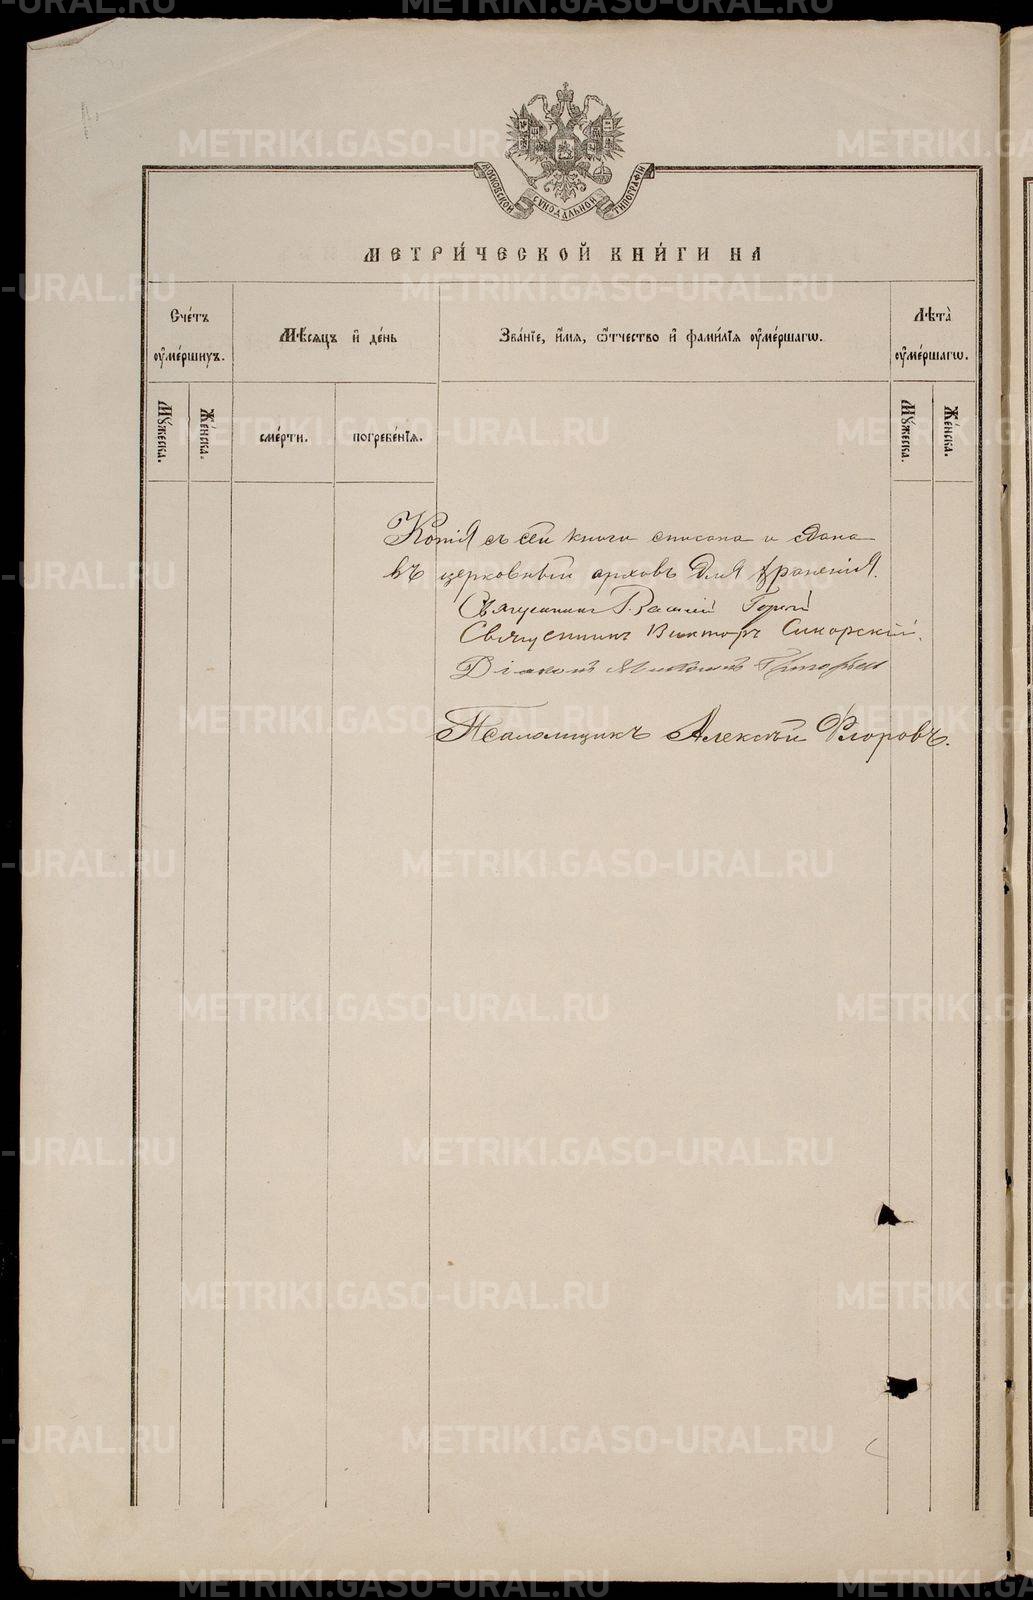 МОСКОВСКОЙ СѴНОДАЛЬНОЙ ТИПОГРАФІИ
МЕТРИ́ЧЕСКОЙ КНИ́ГИ НА
Сче́тъ ᲂу҆ме́ршихъ.
Мѣ́сяцъ и҆ де́нь
Зва́нїе, и҆́мя, ѻ҆́тчество и҆ фами́лїя ᲂу҆ме́ршагѡ.
Лѣта̀ ᲂу҆ме́ршагѡ.
Мꙋ́жеска.
Же́нска.
сме́рти.
погребе́нїя.
Мꙋ́жеска.
Же́нска.
Копія съ сей книги списана и сдана
въ церковный архивъ для храненія.
Священникъ
Священникъ Викторъ Сикорскій.
Діаконъ Григорьевъ
Псаломщикъ Алексѣй Флоровъ.
METRIKI.GASO-URAL.RU